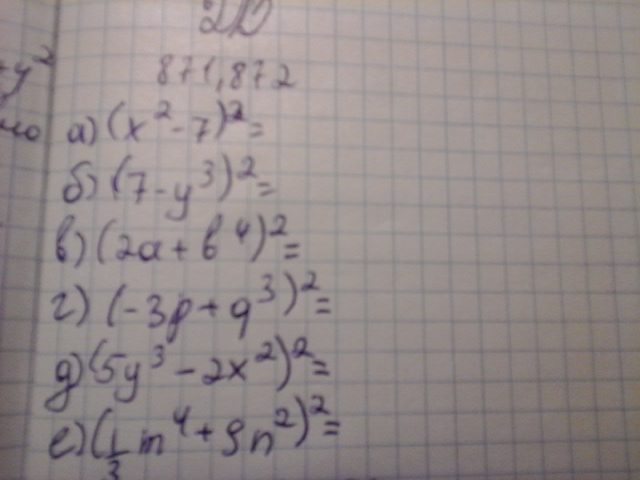 871,872
+y²
а) (x² - 7)² =
б) (7 - y³)² =
в) (2a + b⁴)² =
г) (-3p + q³)² =
д) (5y³ - 2x²)² =
е) (1/3 m⁴ + 9n²)² =